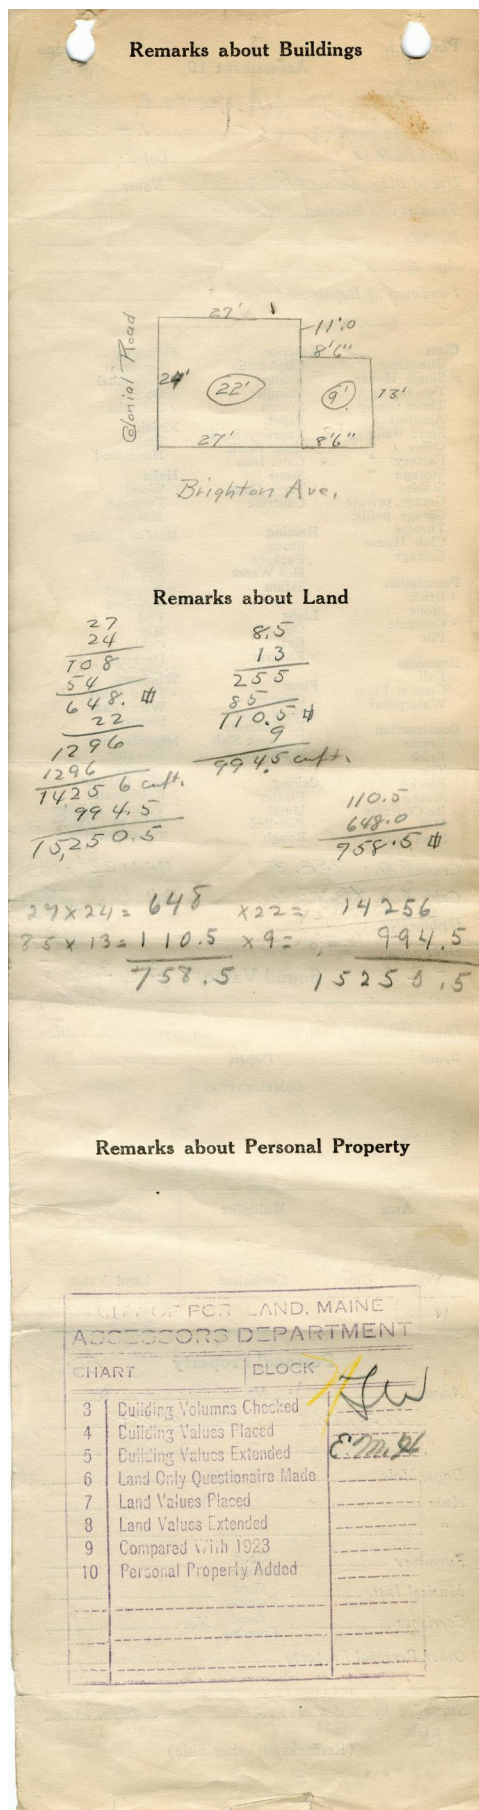 Remarks about Buildings
27'
11'0
8'6"
Colonial Road
24'
22'
9'
13'
27'
8'6"
Brighton Ave.
Remarks about Land
27
24
108
54
648.
22
1296
1296
14256 cuft.
994.5
15,250.5
8.5
13
255
85
110.5
9
994.5 cuft.
110.5
648.0
958.5
27x24= 648 x22= 14256
85x13= 110.5 x9= 994.5
758.5 15250.5
Remarks about Personal Property
CITY OF PORTLAND, MAINE
ASSESSORS DEPARTMENT
CHART BLOCK
3 Building Volumns Checked
4 Building Values Placed
5 Building Values Extended E.M.H.
6 Land Only Questionaire Made
7 Land Values Placed
8 Land Values Extended
9 Compared With 1923
10 Personal Property Added